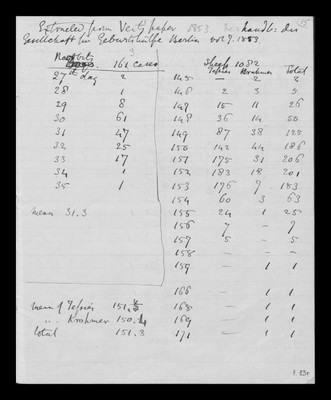 Extracted from Veit's paper 1853 handlb: der
Gesellschaft für Geburtshülfe Berlin vol 7. 1853.
Rabbits 161 cases
27th day 2
28 1
29 8
30 61
31 47
32 25
33 17
34 1
35 1
mean 31.3
Sheep 1082
Tessier Krohmer Total
145 — 2 2
146 2 3 5
147 15 11 26
148 36 14 50
149 87 38 125
150 142 44 186
151 175 31 206
152 183 18 201
153 176 7 183
154 60 3 63
155 24 1 25
156 7 — 7
157 5 — 5
158 — —
159 — 1 1
166 — 1 1
mean of Tessier 151. 168 — 1 1
" Krohmer 150. 169 — 1 1
total 151.3 171 — 1 1